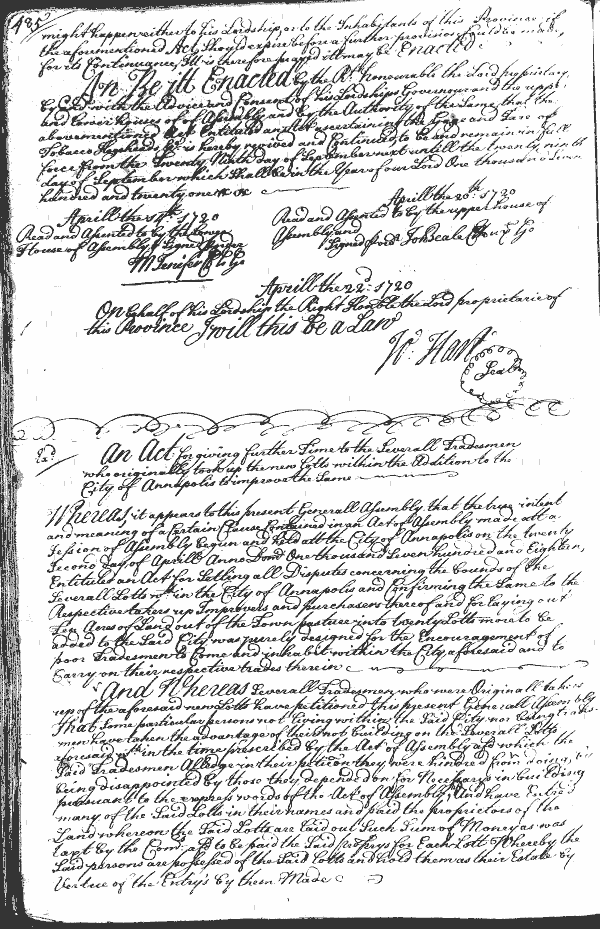 485
might happen either to his Lordship or to the Inhabitants of this Province if
the aforementioned Act Should expire before a further provision could be made
for its Continuance, It is therefore prayed it may be Enacted
And Be itt Enacted by the Rt. honourable the Lord proprietary,
by and with the Advice and Consent of his Lordships Governour and the upper
and Lower Houses of Assembly and by the Authority of the Same, that the
abovementioned Act Entituled an Act ascertaining the Gage and Tare of
Tobacco Hogsheads &c. is hereby revived and Continued to be and remain in full
force from the Twenty Ninth day of September next untill the twenty ninth
day of September which Shall be in the Year of our Lord One thousand Seven
hundred and twenty one
Aprill the 20th. 1720
Aprill the 1720
Read and Assented to by the upper house of
Read and Assented to by the Lower
Assembly and
House of Assembly & Signed
Signed Jo Beale
M Jenifer Cl Lo
Aprill the 22d. 1720
On behalf of his Lordship the Right Honble the Lord proprietarie of
this Province I will this be a Law
Jo. Hart
Seal
An Act for giving further Time to the Severall Tradesmen
who originally took up the new Lotts within the Addition to the
City of Annapolis to improve the Same
Whereas, it appears to this present Generall Assembly, that the true intent
and meaning of a Certain Clause Contained in an Act of Assembly made att a
Session of Assembly begun and held att the City of Annapolis on the twenty
Second day of Aprill Anno Domi One thousand Seven hundred and Eighteen,
Entituled an Act for Setling all Disputes concerning the bounds of the
Severall Lotts in the City of Annapolis and Confirming the Same to the
Respective takers up Improvers and purchasers thereof and for laying out
Ten Acres of Land out of the Town pasture into twenty Lotts more to be
added to the Said City was purely designed for the Encouragement of
poor Tradesmen to Come and inhabit within the City aforesaid and to
Carry on their respective trades therein
And Whereas Severall Tradesmen who were Originall takers
up of the aforesaid new Lotts have petitioned this present Generall Assembly
That Some particular persons not living within the Said City nor being trades-
men have taken the advantage of their not building on the Severall Lotts
aforesaid in the time prescribed by the Act of Assembly afd which the
Said Tradesmen Alledge in their petition they were hindred from doing, by
being disappointed by those they depended on for Necessarys in building
pursuant to the express words of the Act of Assembly, And have Entred
many of the Said Lotts in their names and paid the proprietors of the
Land whereon the Said Lotts are laid out Such Sum of Money as was
by the to be paid the Said for Each Lott Whereby the
Said persons are possessed of the Said Lotts and hold them as their Estate by
Vertue of the Entry's by them Made